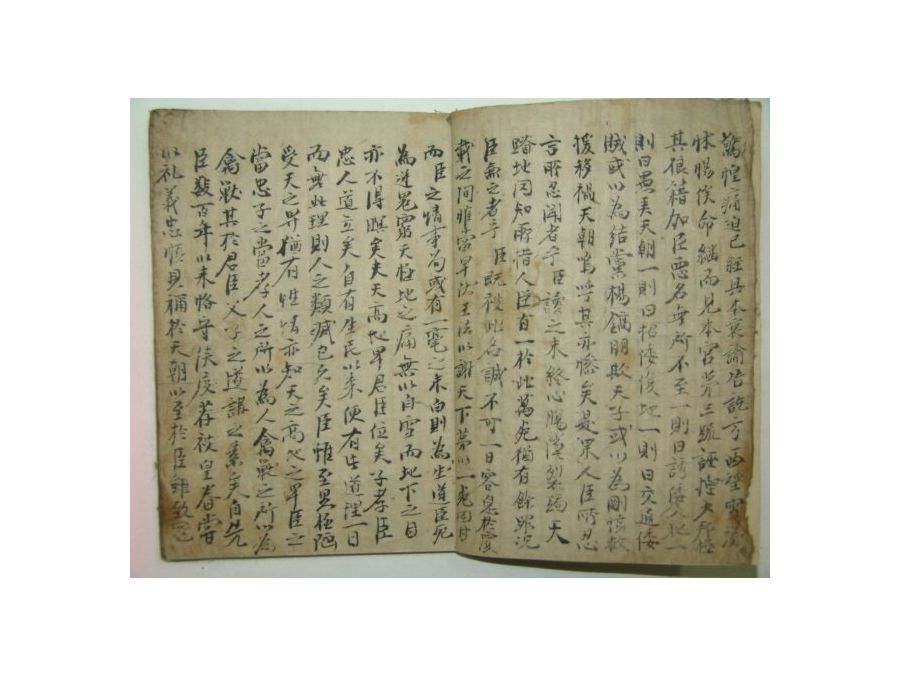 驚惶痛迫已經具本哀
休惕俟命繼而見本官第三疏誣
其狼藉加臣惡名無所不至一則曰誘倭入犯一
則曰愚弄天朝一則曰招倭復地一則曰交通倭
賊或以為結黨楊鎬朋欺天子或以為剛
援移禍天朝嗚呼其亦慘矣是果人臣所忍
言所忍聞者乎臣讀之未終心腸
踏地罔知所措人臣有一於此萬死猶有餘罪況
臣無之者乎臣既被此名誠不可一日容息於覆
載之間惟當早決王法以謝天下
而臣之情事苟或有一毫之未白則為生道臣死
為逆冤窮天極地之痛無以自雪而地下之目
亦不得瞑矣夫天高地卑君臣位矣子孝臣
忠人道立矣自有生民以來便有此道理一日
而無此理則人之類滅已久矣臣惟至愚極陋
受天之畀猶有性情亦知天之高地之卑臣之
當忠子之當孝人之所以為人禽獸之所以為
禽獸其於君臣父子之道講之素矣自先
臣數百年以來恪守侯度荐被皇眷嘗
以礼義忠順見稱於天朝以至於臣雖